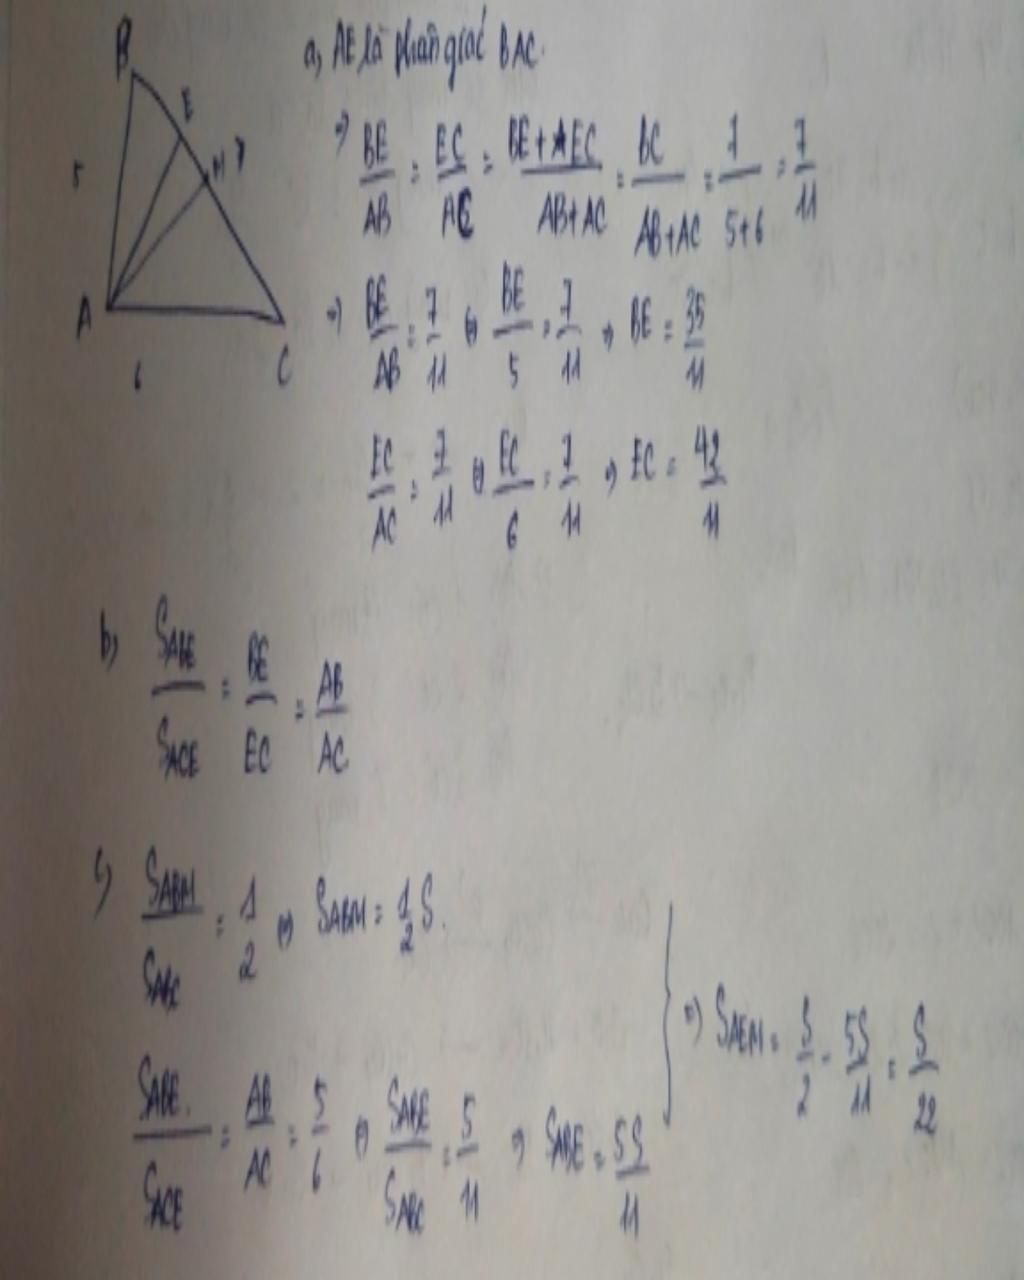 B
E
M
7
5
A
6
C
a, AE là phân giác BAC.
⇒ BE/AB = EC/AC = BE+EC/AB+AC = BC/AB+AC = 7/5+6 = 7/11
⇒ BE/AB = 7/11 ⇔ BE/5 = 7/11 ⇒ BE = 35/11
EC/AC = 7/11 ⇔ EC/6 = 7/11 ⇒ EC = 42/11
b, S_ABE/S_ACE = BE/EC = AB/AC
c, S_ABM/S_ABC = 1/2 ⇔ S_ABM = 1/2 S.
S_ABE/S_ACE = AB/AC = 5/6 ⇔ S_ABE/S_ABC = 5/11 ⇒ S_ABE = 5S/11
} ⇒ S_AEM = S/2 - 5S/11 = S/22